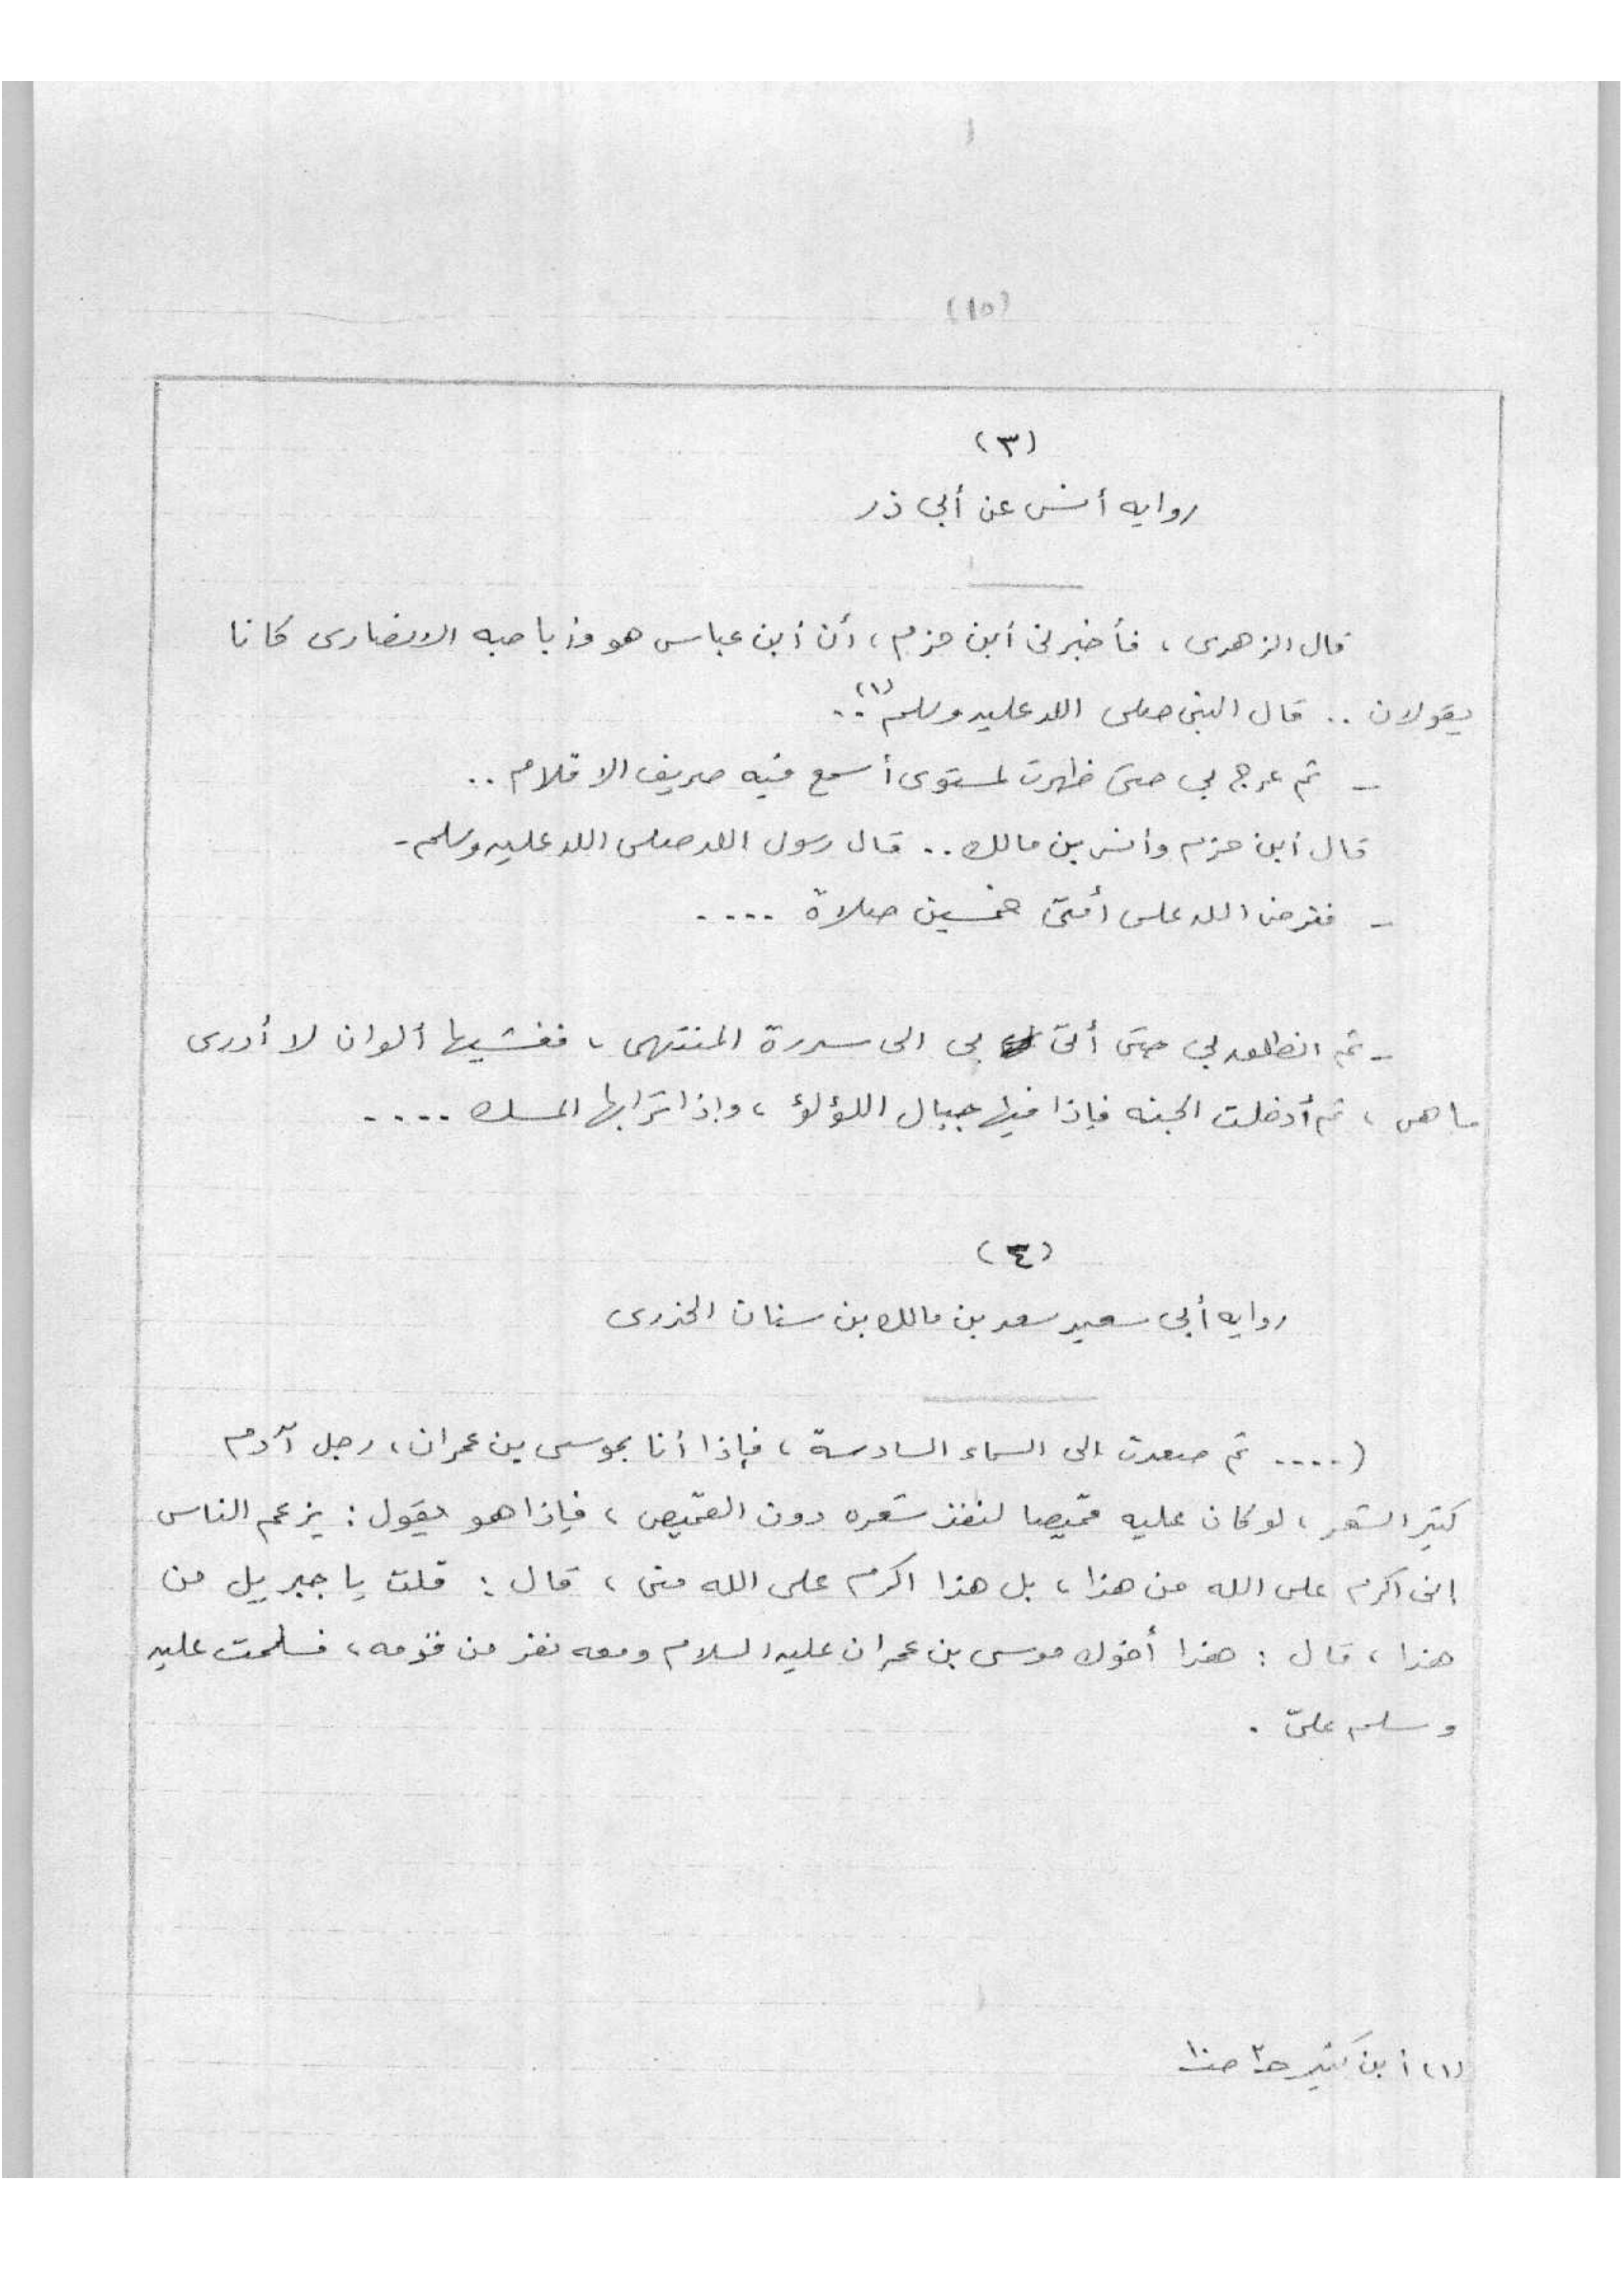 (١٥)
(٣)
روايه أنس عن أبى ذر
قال الزهرى ، فأخبرنى أبن حزم ، أن أبن عباس هو وذ با حبه الانصارى كانا
يقولان .. قال النبى صلى الله عليه وسلم (١) ..
- ثم عرج بى حتى ظهرت لمستوى أسمع فيه صريف الاقلام ..
قال أبن حزم وأنس بن مالك .. قال رسول الله صلى الله عليه وسلم -
- ففرض الله على أمتى خمسين صلاة ....
- ثم انطلق بى حتى أتى بى الى سدرة المنتهى ، فغشيها ألوان لا أدرى
ما هى ، ثم أدخلت الجنه فإذا فيها جبال اللؤلؤ ، وإذا ترابها المسك ....
(٤)
روايه أبى سعيد سعد بن مالك بن سنان الخدرى
( .... ثم صعدت الى السماء السادسة ، فإذا أنا بموسى بن عمران ، رجل آدم
كثير الشعر ، لو كان عليه قميصا لنفذ شعره دون القميص ، فإذا هو يقول : يزعم الناس
إنى اكرم على الله من هذا ، بل هذا اكرم على الله منى ، قال : قلت يا جبريل من
هذا ، قال : هذا أخوك موسى بن عمران عليه السلام ومعه نفر من قومه ، فسلمت عليه
وسلم علىّ .
(١) أبن كثير حـ٣ صـ١٠